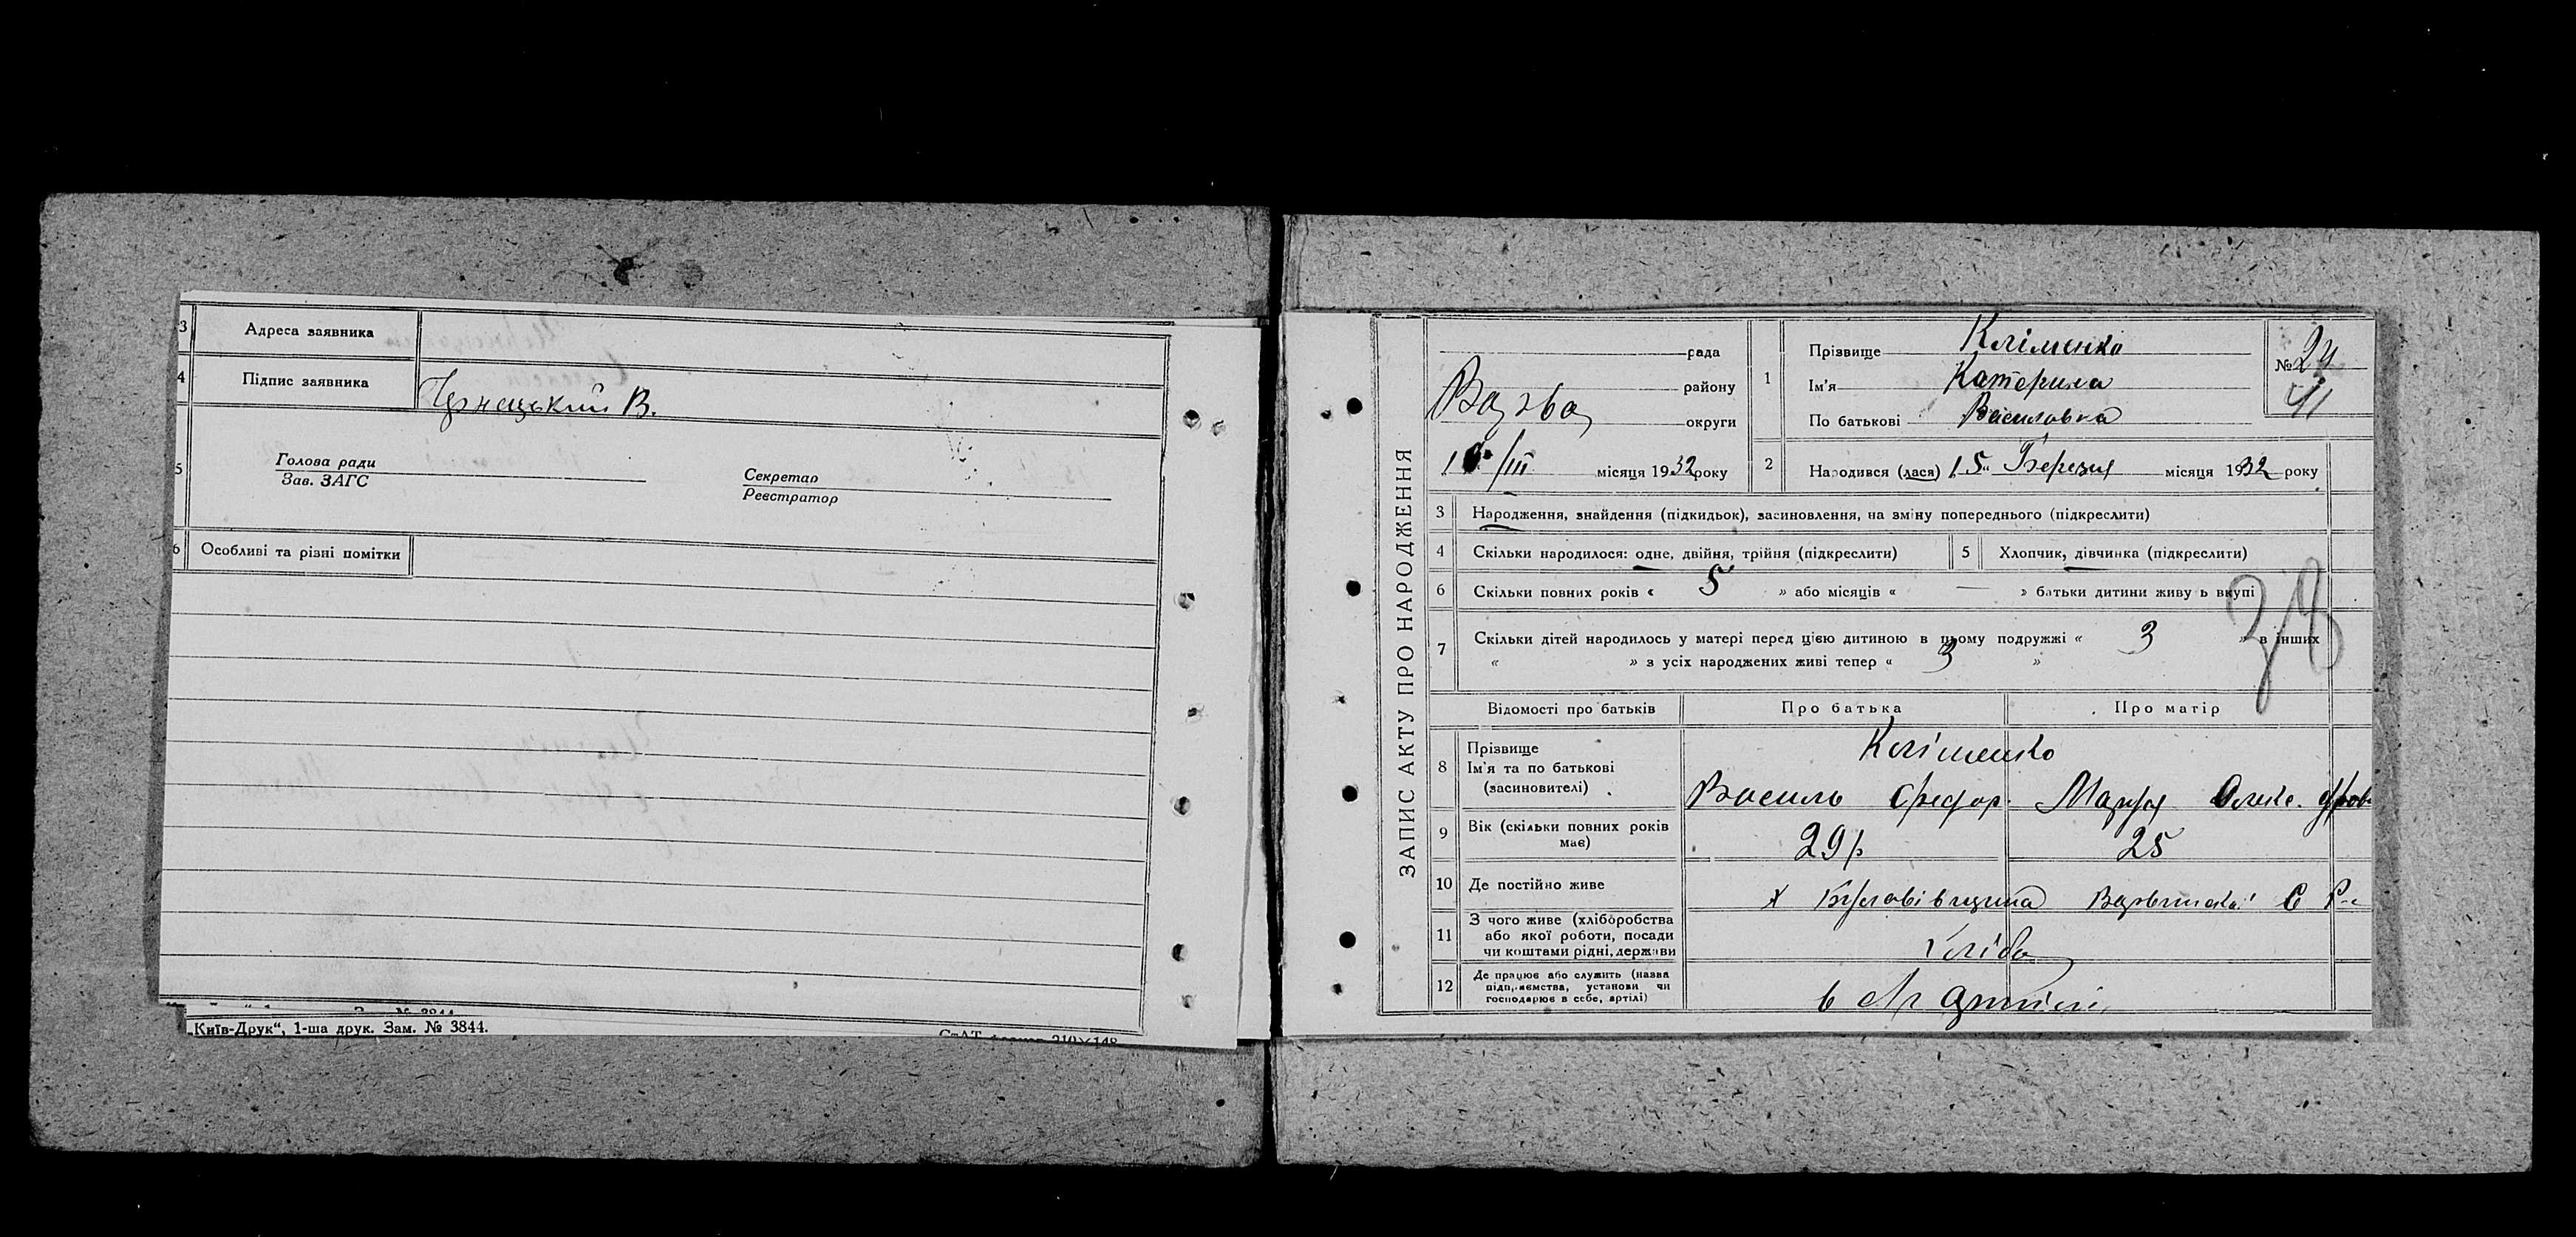 3 Адреса заявника
4 Підпис заявника
Чрнецький В.
5 Голова ради
Зав. ЗАГС
Секретар
Реєстратор
6 Особливі та різні помітки
„Київ-Друк“, 1-ша друк. Зам. № 3844.
ЗАПИС АКТУ ПРО НАРОДЖЕННЯ
рада
району
Варва
округи
/III місяця 1932 року
1 Прізвище Кліменко
Ім'я Катерина
По батькові Василовна
№ 24
41
2 Народився (лася) 15 Березня місяця 1932 року
3 Народження, знайдення (підкидьок), засиновлення, на зміну попереднього (підкреслити)
4 Скільки народилося: одне, двійня, трійня (підкреслити)
5 Хлопчик, дівчинка (підкреслити)
6 Скільки повних років « 5 » або місяців « — » батьки дитини живуть вкупі
7 Скільки дітей народилось у матері перед цією дитиною в цьому подружжі « 3 » в інших
« » з усіх народжених живі тепер « 3 »
Відомості про батьків
Про батька
Про матір
8 Прізвище
Ім'я та по батькові
(засиновителі)
Кліменко
Василь Федор.
Марія
9 Вік (скільки повних років
має)
29 р
25
10 Де постійно живе
х Варвинської С Р
11 З чого живе (хліборобства
або якої роботи, посади
чи коштами рідні, держави
Хліба
12 Де працює або служить (назва
підприємства, установи чи
господарює в себе, артілі)
в артілі